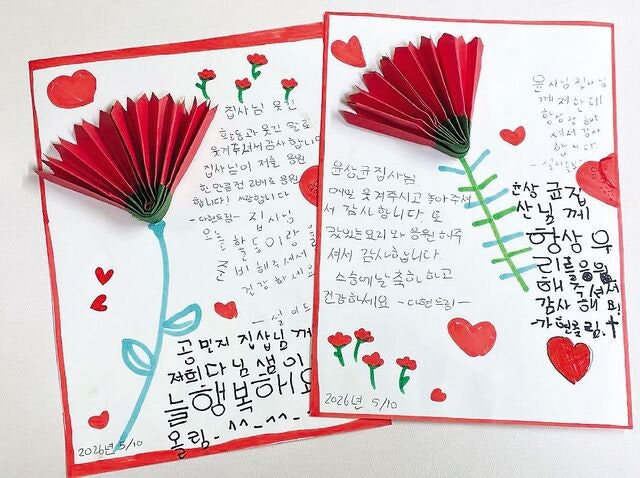 집사님 웃긴
행동과 웃긴 말로
웃겨주셔서 감사합니다
집사님이 저를 응원
한 만큼 전 2배로 응원
합니다! 사랑합니다
-다현드림-
집사님
오늘 활동이랑
준비해주셔서
건강하세요
공민지 집사님께
저희 다님 샘이
늘 행복해요
올림- ^^-^^-
2026년 5/10
윤사님 집사님
께 저한테
항상
셔서 감사
합니다
윤상균 집사님
매일 웃겨주시고 놀아주셔
서 감사합니다. 또
맛있는 요리와 응원해주
셔서 감사합니다
스승에날 축하하고
건강하세요 -다현드림-
윤상균 집
산님께
항상 우
리를 응원
해주셔서
감사해요!
가현올림.
2026년 5/10